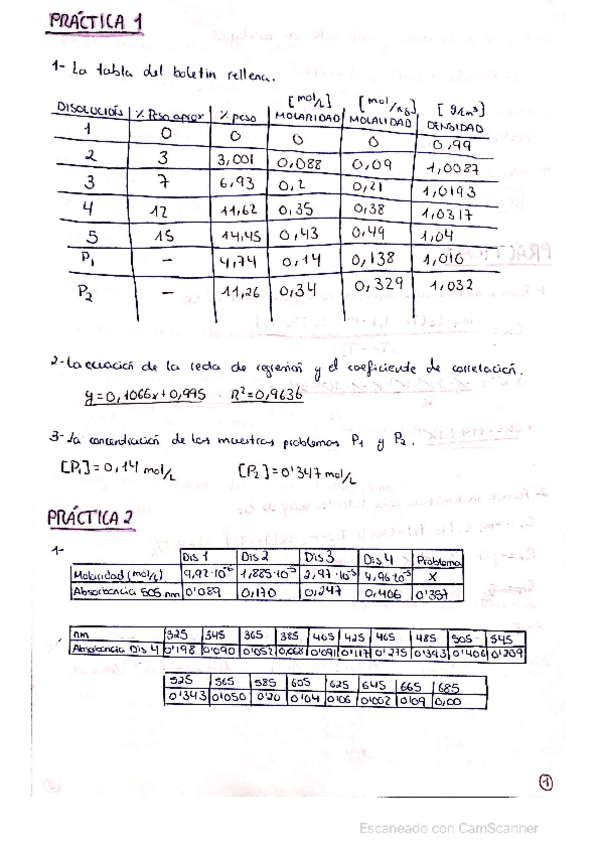 PRÁCTICA 1
1- La tabla del boletin rellena.
[mol/L] [mol/kg] [g/cm³]
DISOLUCIÓN % Peso aprox % peso MOLARIDAD MOLALIDAD DENSIDAD
1 0 0 0 0 0,99
2 3 3,001 0,088 0,09 1,0087
3 7 6,93 0,2 0,21 1,0193
4 12 11,62 0,35 0,38 1,0317
5 15 14,45 0,43 0,49 1,04
P₁ - 4,74 0,14 0,138 1,010
P₂ - 11,26 0,34 0,329 1,032
2- La ecuación de la recta de regresión y el coeficiente de correlación.
y=0,1066x+0,995 R²=0,9636
3- La concentración de las muestras problemas P₁ y P₂.
[P₁]=0,14 mol/L [P₂]=0'347 mol/L
PRÁCTICA 2
1-
Dis 1 Dis 2 Dis 3 Dis 4 Problema
Molaridad (mol/L) 9,92·10⁻⁶ 1,885·10⁻⁵ 2,97·10⁻⁵ 4,96·10⁻⁵ X
Absorbancia 505 nm 0'089 0,170 0,247 0,406 0'357
nm 325 345 365 385 405 425 465 485 505 545
Absorbancia Dis 4 0'198 0'090 0'052 0,068 0'091 0'117 0'275 0'393 0'406 0'209
525 565 585 605 625 645 665 685
0'343 0'050 0'20 0'104 0'06 0'002 0'09 0,00
1
Escaneado con CamScanner